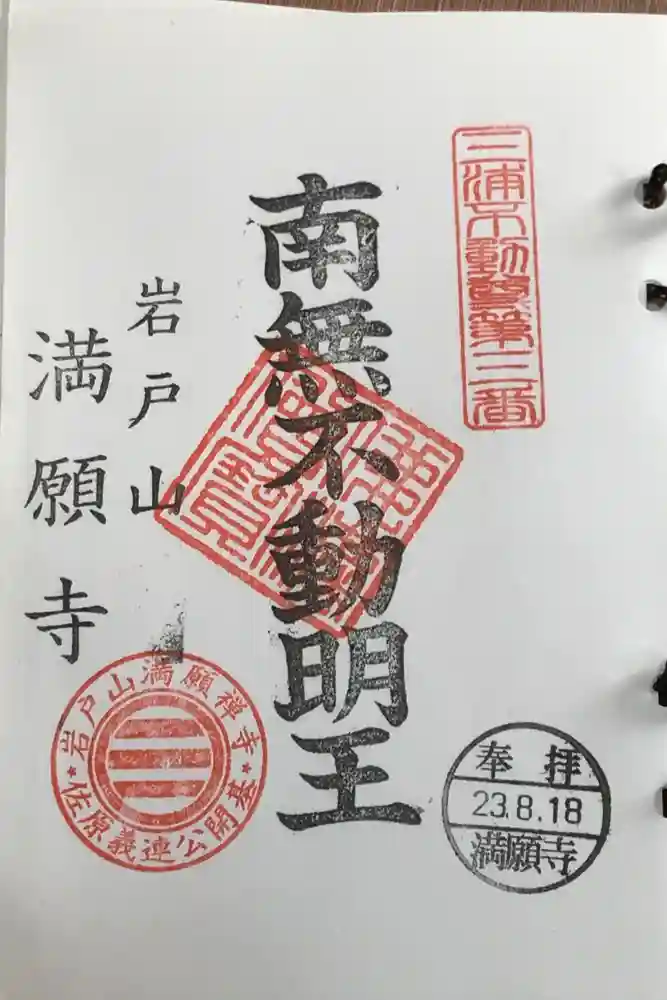 三浦不動尊第三番
南無不動明王
岩戸山
満願寺
岩戸山満願禅寺
佐原義連公開基
奉拝
23.8.18
満願寺